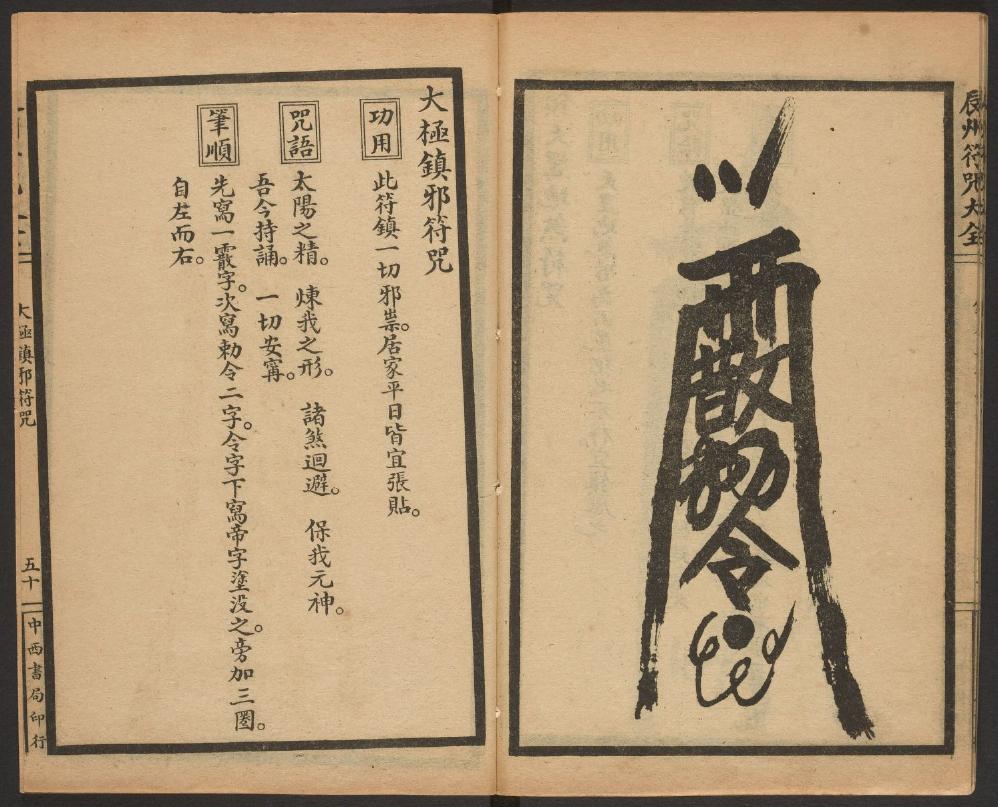 辰州符咒大全
敕令
大極鎮邪符咒
功用
此符鎮一切邪祟。居家平日皆宜張貼。
咒語
太陽之精。煉我之形。諸煞迴避。保我元神。
吾今持誦。一切安寗。
筆順
先寫一霰字。次寫勅令二字。令字下寫帝字塗没之。旁加三圈。
自左而右。
大極鎮邪符咒
五十
中西書局印行